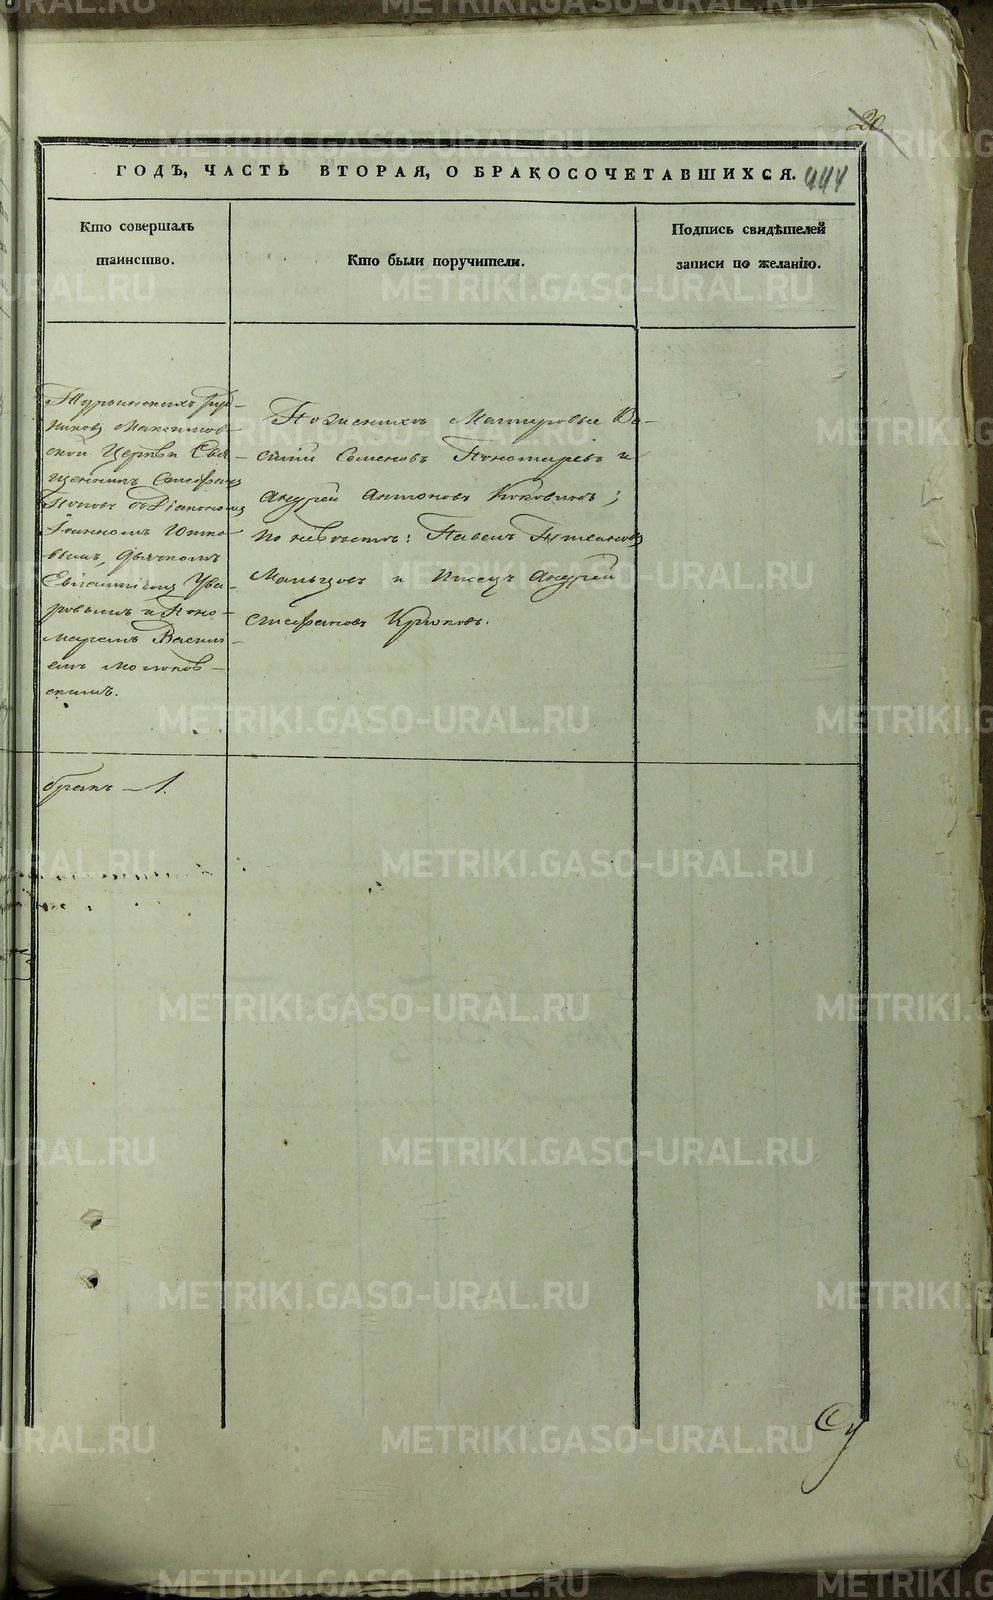 20.
ГОДЪ, ЧАСТЬ ВТОРАЯ, О БРАКОСОЧЕТАВШИХСЯ.
444
Кто совершалъ
таинство.
Кто были поручители.
Подпись свидѣтелей
записи по желанію.
Турьинскихъ Руд-
никовъ Максимов-
ской Церкви Свя-
щенникъ Стефанъ
Поповъ съ Діакономъ
Іоанномъ
вымъ, Дьячкомъ
Ува-
ровымъ и Поно-
маремъ Васил-
емъ Молоков-
скимъ.
По женихѣ Мастеровые Ва-
силій Семеновъ Пономаревъ и
Андрей Антоновъ Коковинъ;
по невѣстѣ: Павелъ
Мальцовъ и Писецъ Андрей
Стефановъ Крюковъ.
бракъ – 1.
METRIKI.GASO-URAL.RU